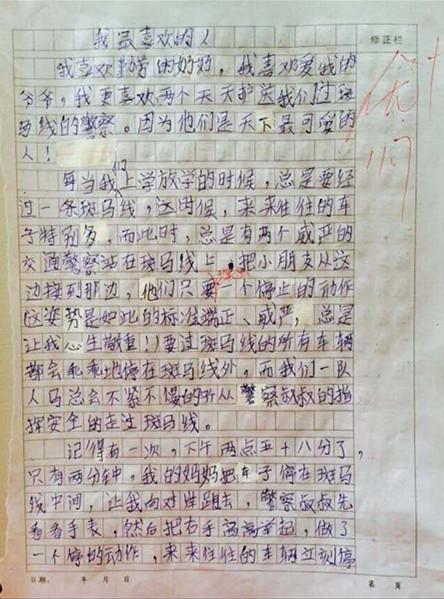 我最喜欢的人
修正栏
我喜欢勤劳的奶奶，我喜欢爱我的
爷爷，我更喜欢两个天天护送我们过斑
马线的警察。因为他们是天下最可爱的
人！
每当我们上学放学的时候，总是要经
过一条斑马线，这时候，来来往往的车
子特别多，而此时，总是有两个威严的
交通警察站在斑马线上，把小朋友从这
边接到那边，他们只要一个停止的动作
这姿势是如此的标准端正、威严，总是
让我心生敬重！要过斑马线的所有车辆
都会乖乖地停在斑马线外，而我们一队
人马总会不紧不慢的听从警察叔叔的指
挥安全的走过斑马线。
记得有一次，下午两点五十八分了，
只有两分钟，我的妈妈把车子停在斑马
线中间，让我向对岸跑去，警察叔叔先
看看手表，然后把右手高高举起，做了
一个停的动作，来来往往的车辆立刻停
优+
日期： 年 月 日
第 页